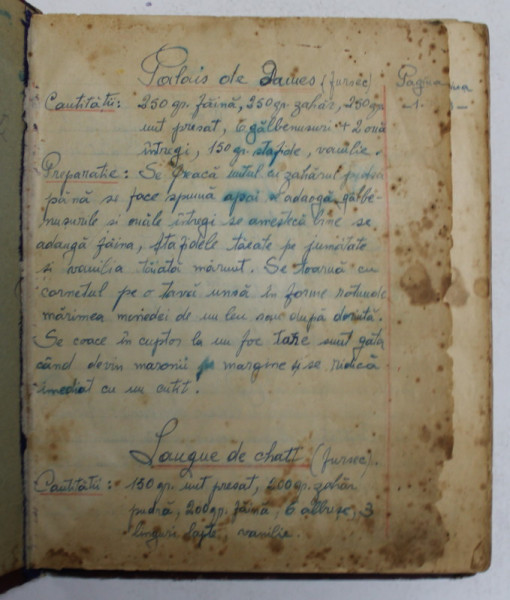 Palais de Dames (fursec)
Pagina
-1-
Cantități: 250 gr. făină, 250 gr. zahăr, 250 gr.
unt presat, 6 gălbenușuri + 2 ouă
întregi, 150 gr. stafide, vanilie.
Preparație: Se freacă untul cu zahărul pudră
până se face spumă apoi se adaogă gălbe-
nușurile și ouăle întregi se amestecă bine se
adaugă făina, stafidele tăiate pe jumătate
și vanilia tăiată mărunt. Se toarnă cu
cornetul pe o tavă unsă în forme rotunde
mărimea monedei de un leu sau după dorință.
Se coace în cuptor la un foc tare sunt gata
când devin maronii pe margine și se ridică
imediat cu un cuțit.
Langue de chatt (fursec).
Cantități: 150 gr. unt presat, 200 gr. zahăr
pudră, 200 gr. făină, 6 albușe, 3
linguri lapte, vanilie.